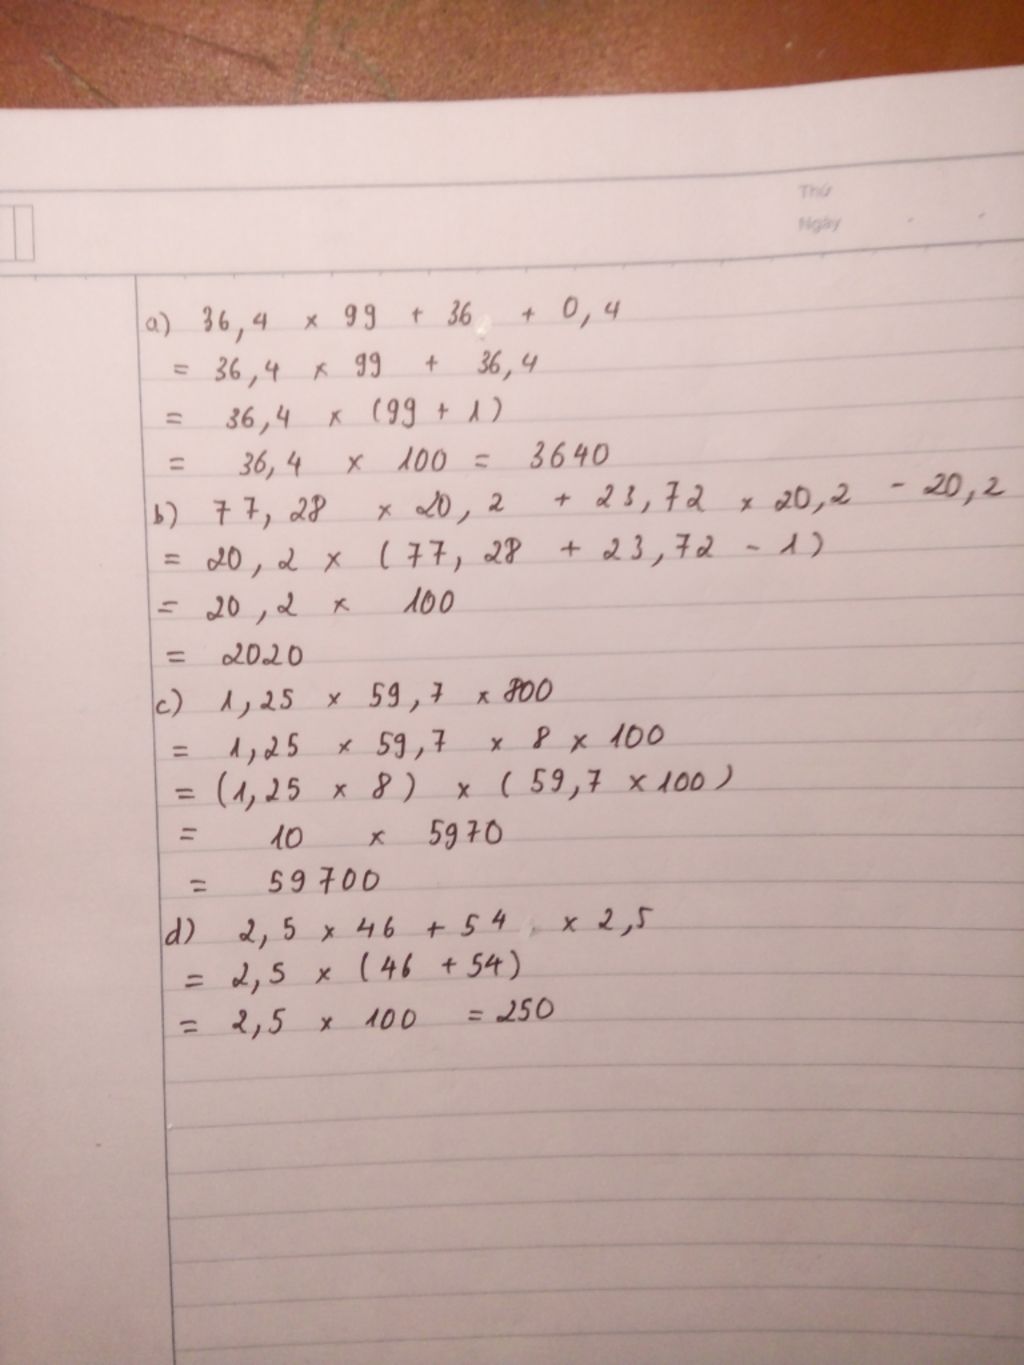 Thứ
Ngày
a) 36,4 × 99 + 36 + 0,4
= 36,4 × 99 + 36,4
= 36,4 × (99 + 1)
= 36,4 × 100 = 3640
b) 77,28 × 20,2 + 23,72 × 20,2 - 20,2
= 20,2 × (77,28 + 23,72 - 1)
= 20,2 × 100
= 2020
c) 1,25 × 59,7 × 800
= 1,25 × 59,7 × 8 × 100
= (1,25 × 8) × (59,7 × 100)
= 10 × 5970
= 59700
d) 2,5 × 46 + 54 × 2,5
= 2,5 × (46 + 54)
= 2,5 × 100 = 250